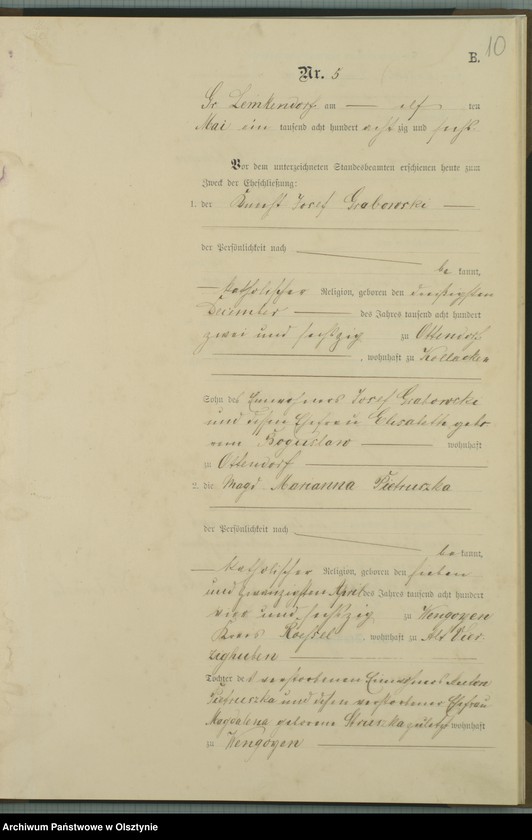 10
E.
Nr. 5
Gr. Lemkendorf am — elf ten
Mai ein tausend acht hundert achtzig und sechs.
Vor dem unterzeichneten Standesbeamten erschienen heute zum
Zweck der Eheschließung:
1. der Knecht Josef Grabowski
der Persönlichkeit nach
be kannt,
katholischer Religion, geboren den dreißigsten
Dezember des Jahres tausend acht hundert
zwei und sechszig zu Ottendorf
, wohnhaft zu Kollacken
Sohn des Einwohners Josef Grabowski
und dessen Ehefrau Elisabeth gebo
renen Boguslaw wohnhaft
zu Ottendorf
2. die Magd Marianna Pietruszka
der Persönlichkeit nach
be kannt,
katholischer Religion, geboren den sieben
und zwanzigsten April des Jahres tausend acht hundert
vier und sechszig zu Wengoyen
Kreis Roessel, wohnhaft zu Alt Vier
zighuben
Tochter des verstorbenen Einwohners Anton
Pietruszka und dessen verstorbener Ehefrau
Magdalena geborene zuletzt wohnhaft
zu Wengoyen
Archiwum Państwowe w Olsztynie